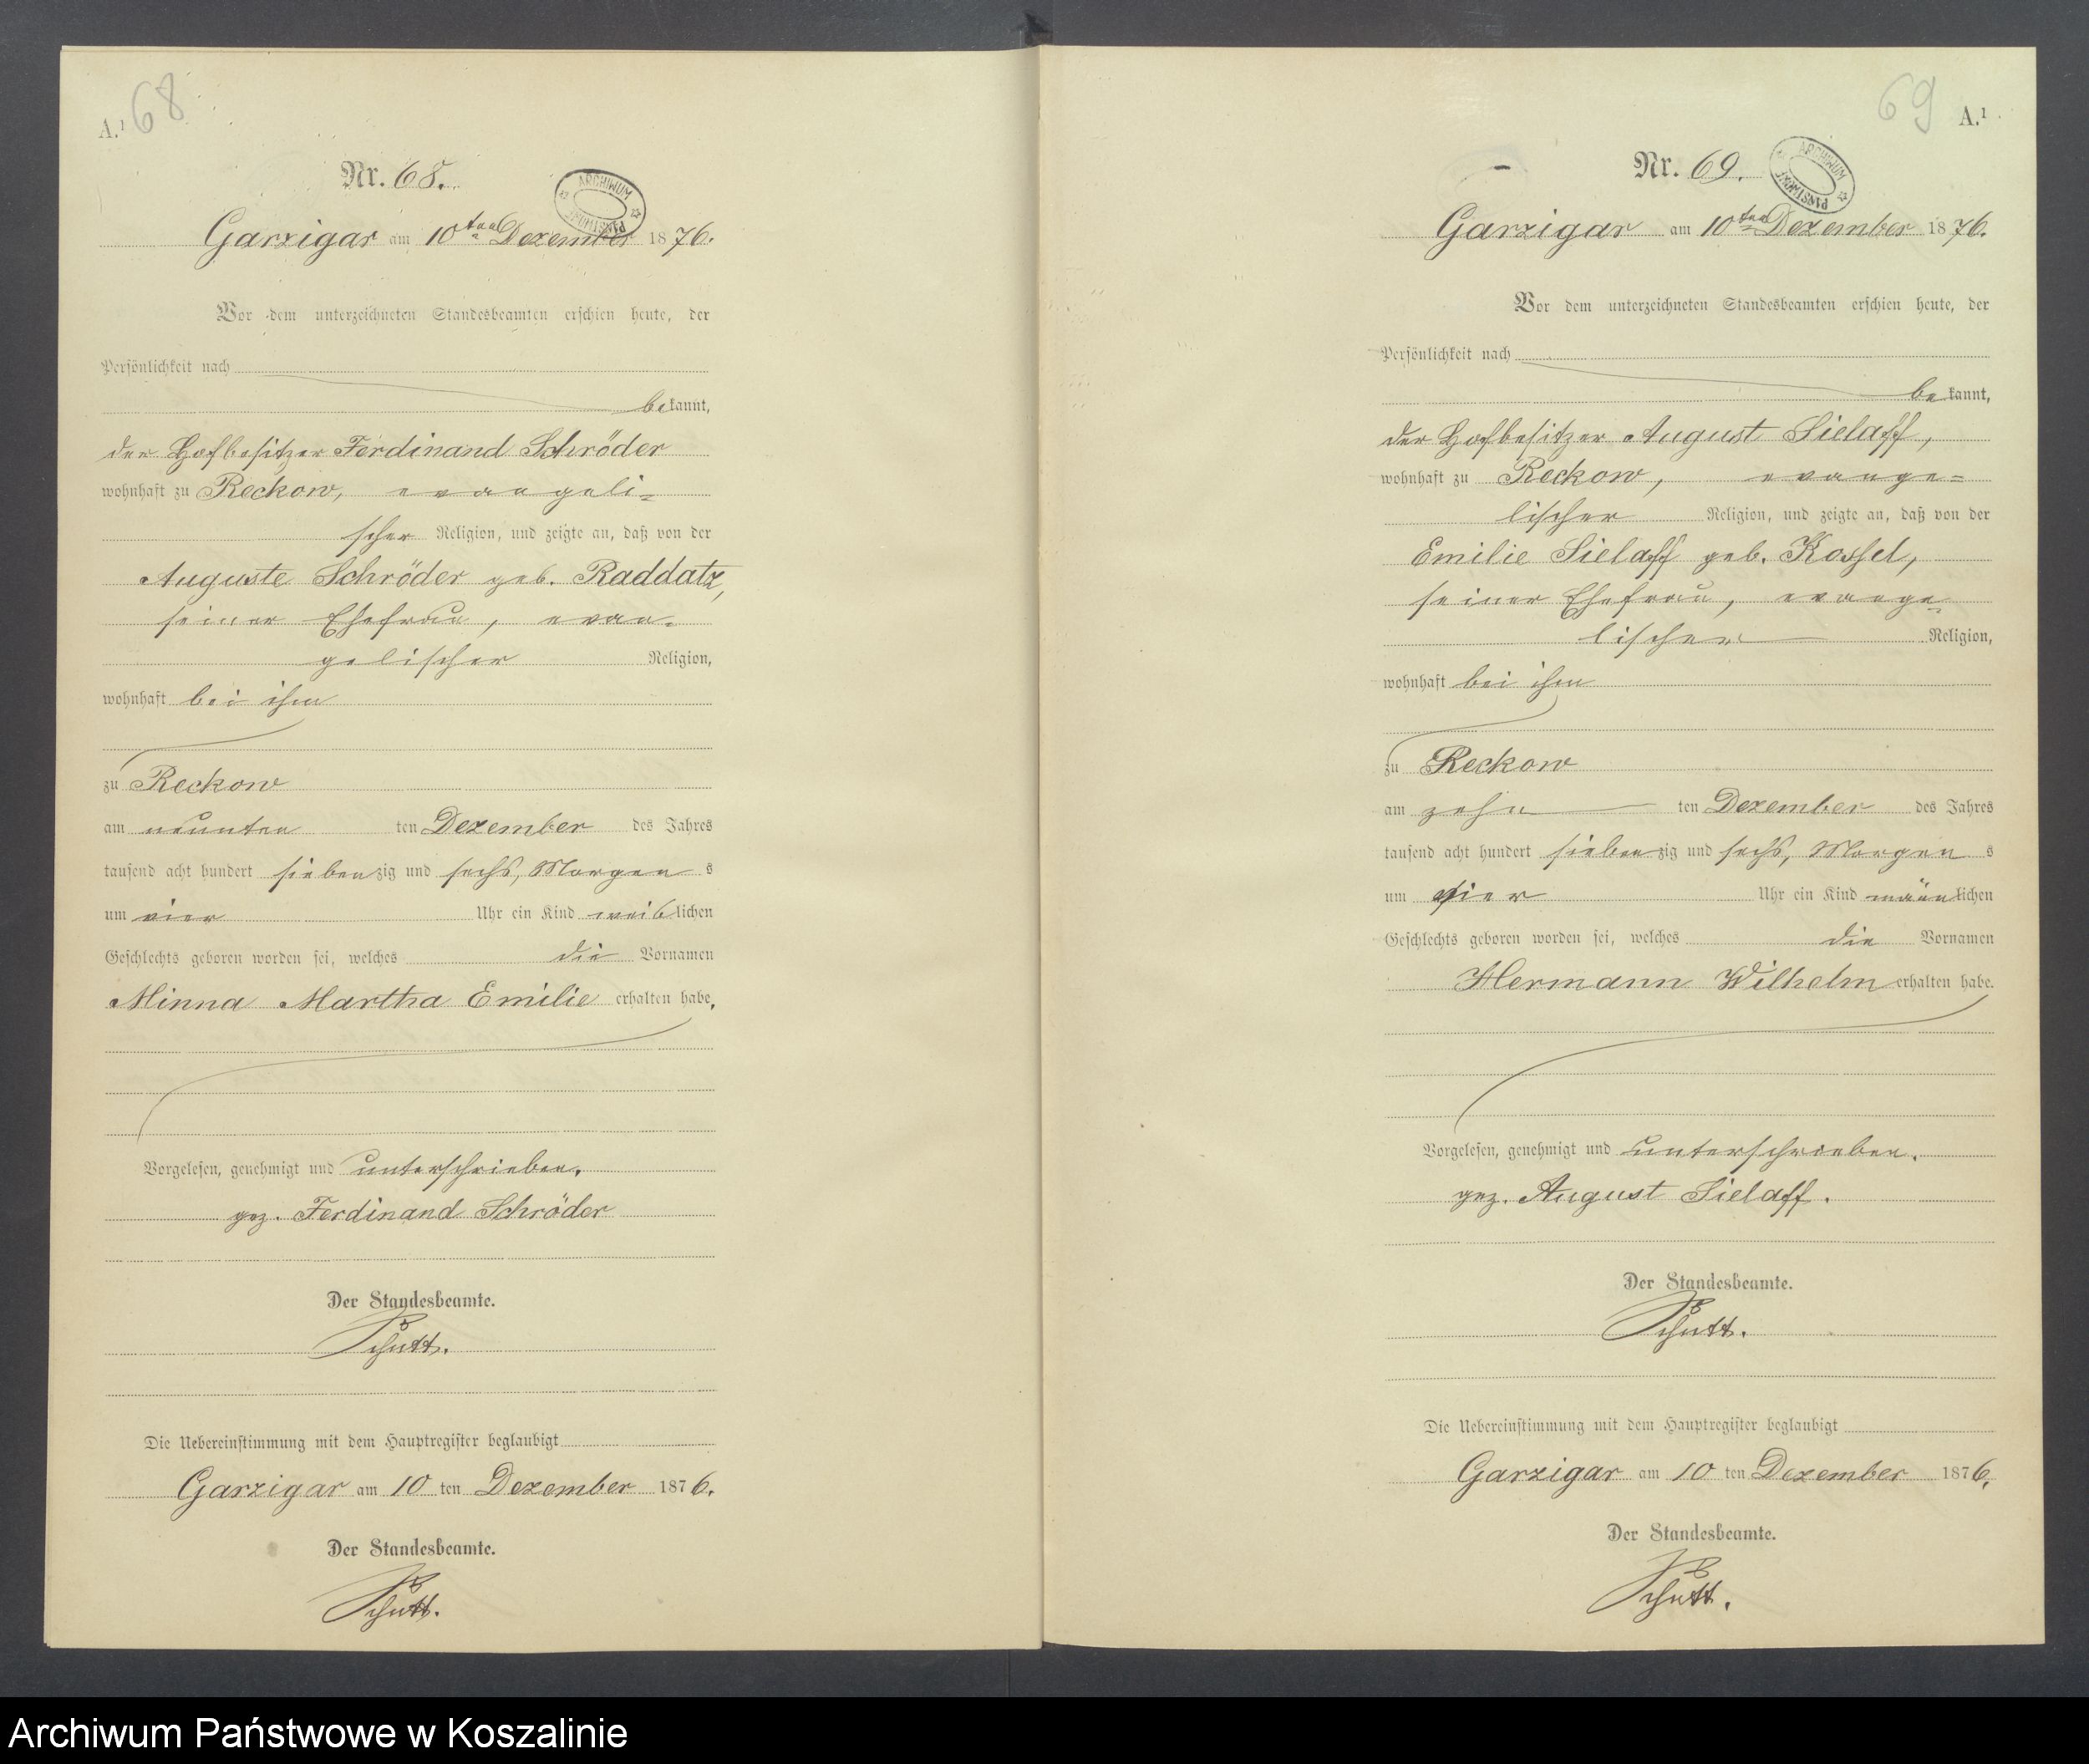 68
A.¹
Nr. 68.
ARCHIWUM PAŃSTWOWE
Garzigar am 10ten Dezember 1876.
Vor dem unterzeichneten Standesbeamten erschien heute, der
Persönlichkeit nach
bekannt,
der Hofbesitzer Ferdinand Schröder
wohnhaft zu Reckow, evangeli-
scher Religion, und zeigte an, daß von der
Auguste Schröder geb. Raddatz,
seiner Ehefrau, evan-
gelischer Religion,
wohnhaft bei ihm
zu Reckow
am neunten ten Dezember des Jahres
tausend acht hundert siebenzig und sechs, Morgens
um vier Uhr ein Kind weiblichen
Geschlechts geboren worden sei, welches die Vornamen
Minna Martha Emilie erhalten habe.
Vorgelesen, genehmigt und unterschrieben.
gez. Ferdinand Schröder
Der Standesbeamte.
Schütt.
Die Uebereinstimmung mit dem Hauptregister beglaubigt
Garzigar am 10 ten Dezember 1876.
Der Standesbeamte.
Schütt.
69
A.¹
Nr. 69.
ARCHIWUM PAŃSTWOWE
Garzigar am 10ten Dezember 1876.
Vor dem unterzeichneten Standesbeamten erschien heute, der
Persönlichkeit nach
bekannt,
der Hofbesitzer August Sielaff,
wohnhaft zu Reckow, evange=
lischer Religion, und zeigte an, daß von der
Emilie Sielaff geb. Kossel,
seiner Ehefrau, evange-
lischer Religion,
wohnhaft bei ihm
zu Reckow
am zehn ten Dezember des Jahres
tausend acht hundert siebenzig und sechs, Morgens
um vier Uhr ein Kind männlichen
Geschlechts geboren worden sei, welches die Vornamen
Hermann Wilhelm erhalten habe.
Vorgelesen, genehmigt und unterschrieben.
gez. August Sielaff.
Der Standesbeamte.
Schütt.
Die Uebereinstimmung mit dem Hauptregister beglaubigt
Garzigar am 10 ten Dezember 1876.
Der Standesbeamte.
Schütt.
Archiwum Państwowe w Koszalinie